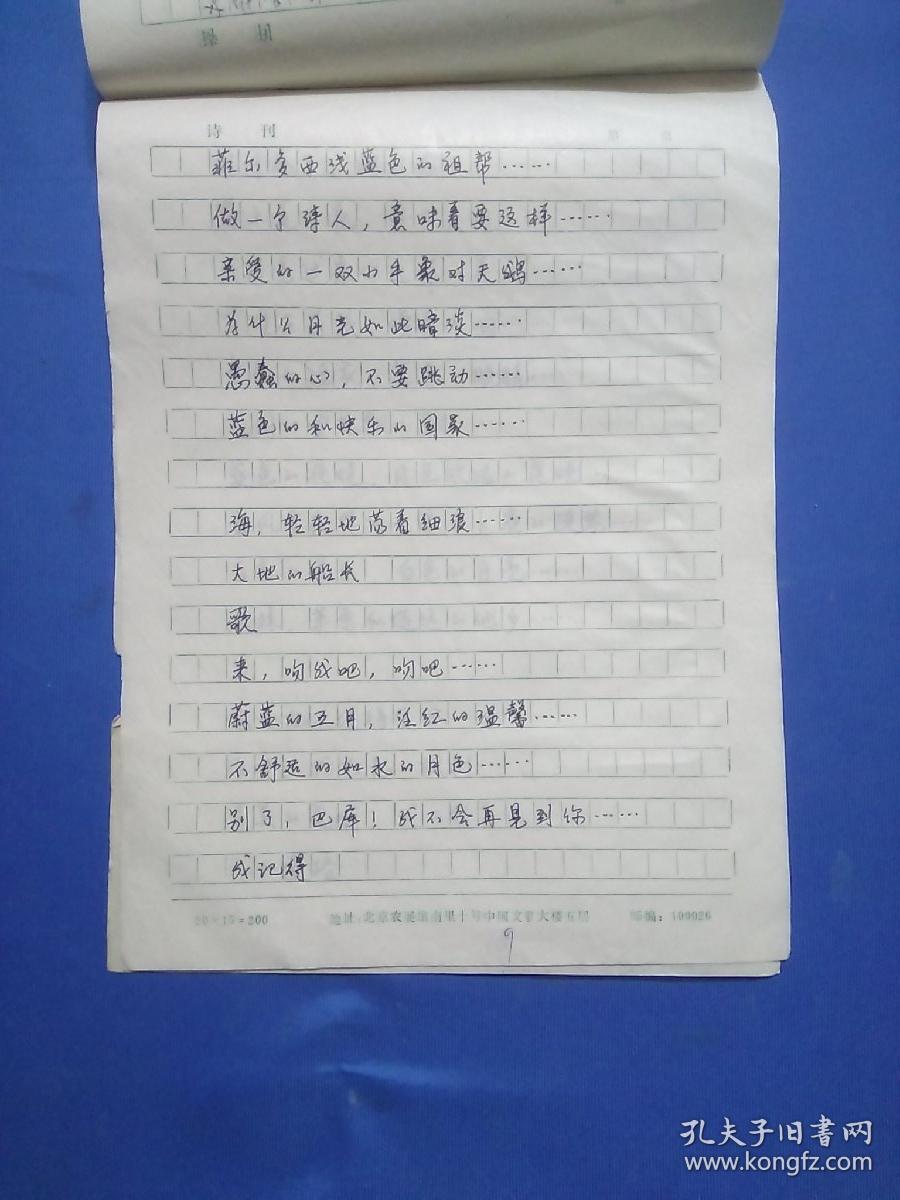 诗 刊
菲尔多西浅蓝色的祖帮……
做一个诗人，意味着要这样……
亲爱的一双小手象对天鹅……
为什么月光如此暗淡……
愚蠢的心，不要跳动……
蓝色的和快乐的国家……
海，轻轻地荡着细浪……
大地的船长
歌
来，吻我吧，吻吧……
蔚蓝的五月，注红的温馨……
不舒适的如水的月色……
别了，巴库！我不会再见到你……
我记得
20×15=200 地址：北京农展馆南里十号中国文联大楼五层 邮编：100026
9
孔夫子旧书网
www.kongfz.com